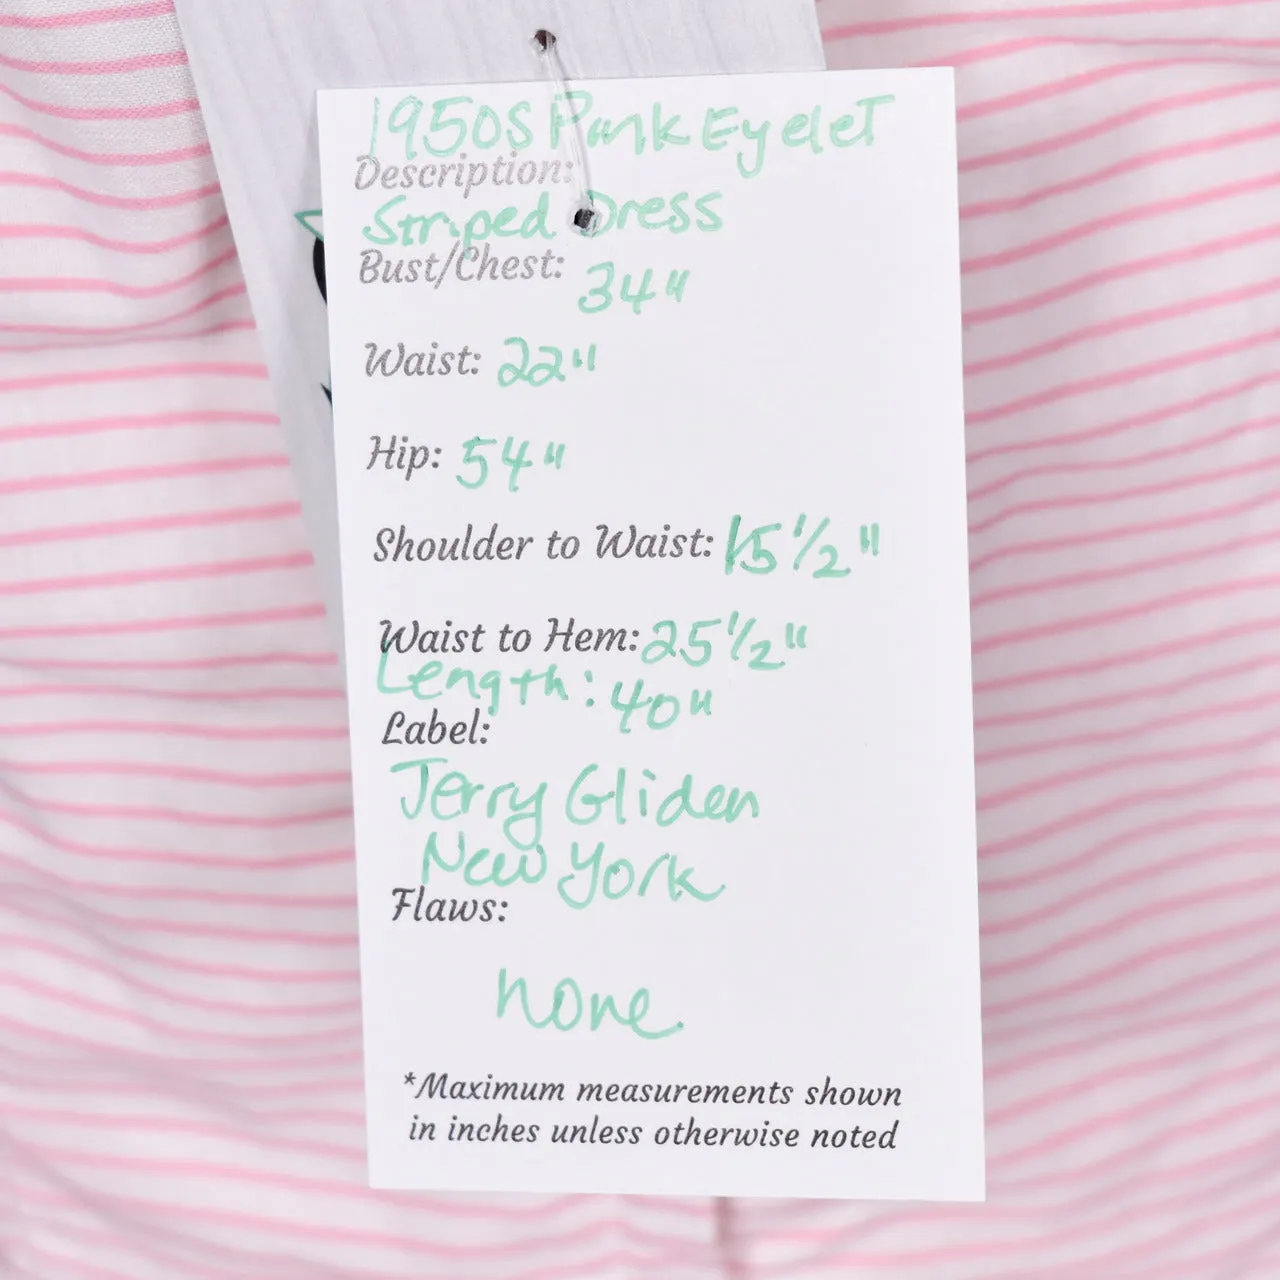 1950s Pink Eyelet
Description:
Striped Dress
Bust/Chest: 34"
Waist: 22"
Hip: 54"
Shoulder to Waist: 15 1/2"
Waist to Hem: 25 1/2"
Length: 40"
Label:
Jerry Gliden
New York
Flaws:
none
*Maximum measurements shown
in inches unless otherwise noted